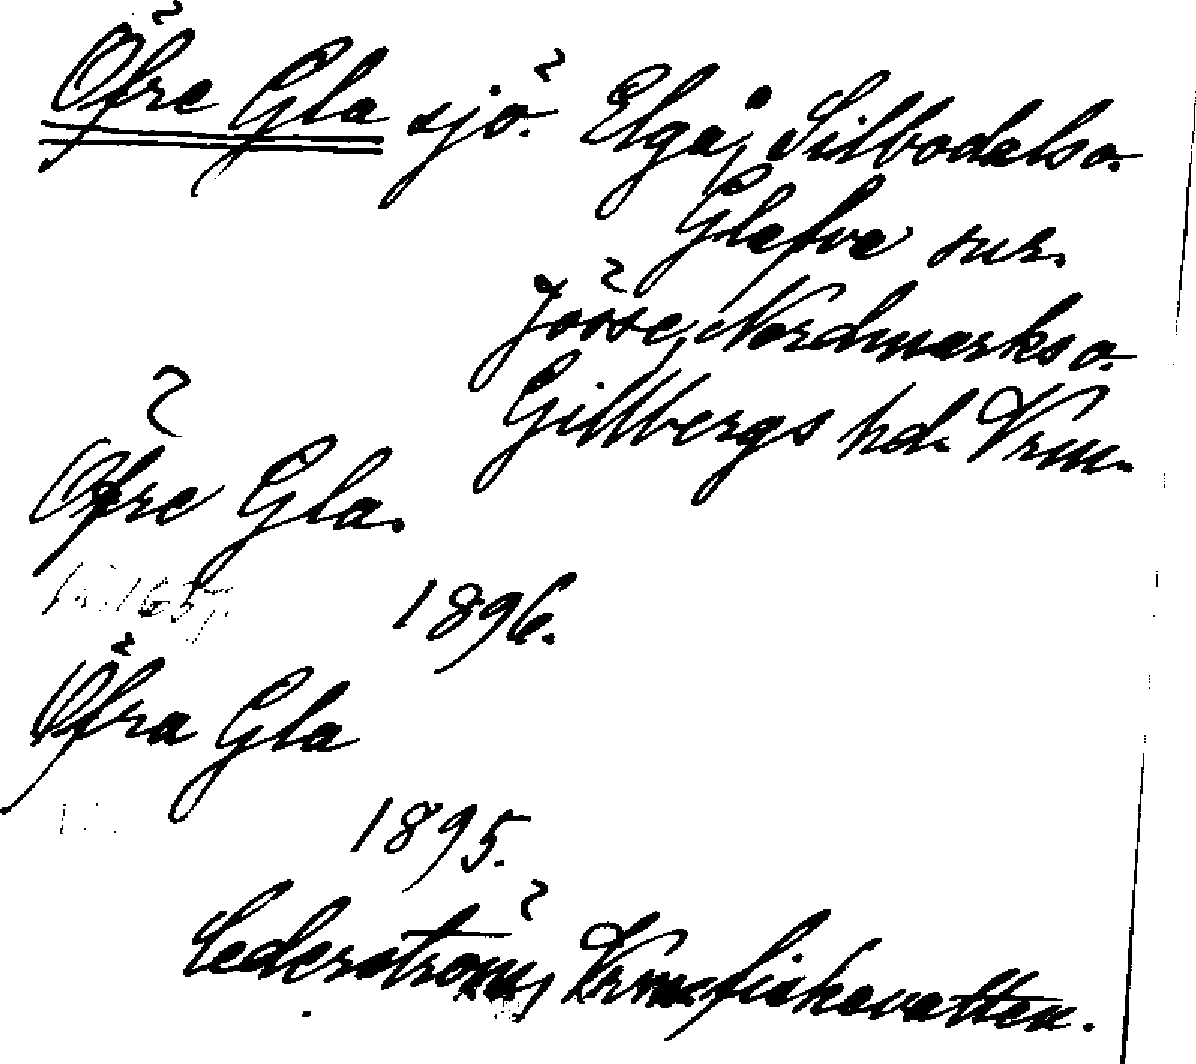 Öfre Gla sjö. Elga, Silbodals o.
Glafva snr.
Jösse, Nordmarks o.
Gillbergs hd. Vrm.
Öfre Gla.
1896.
Öfra Gla
1895.
Cederström, Vrms fiskevatten.